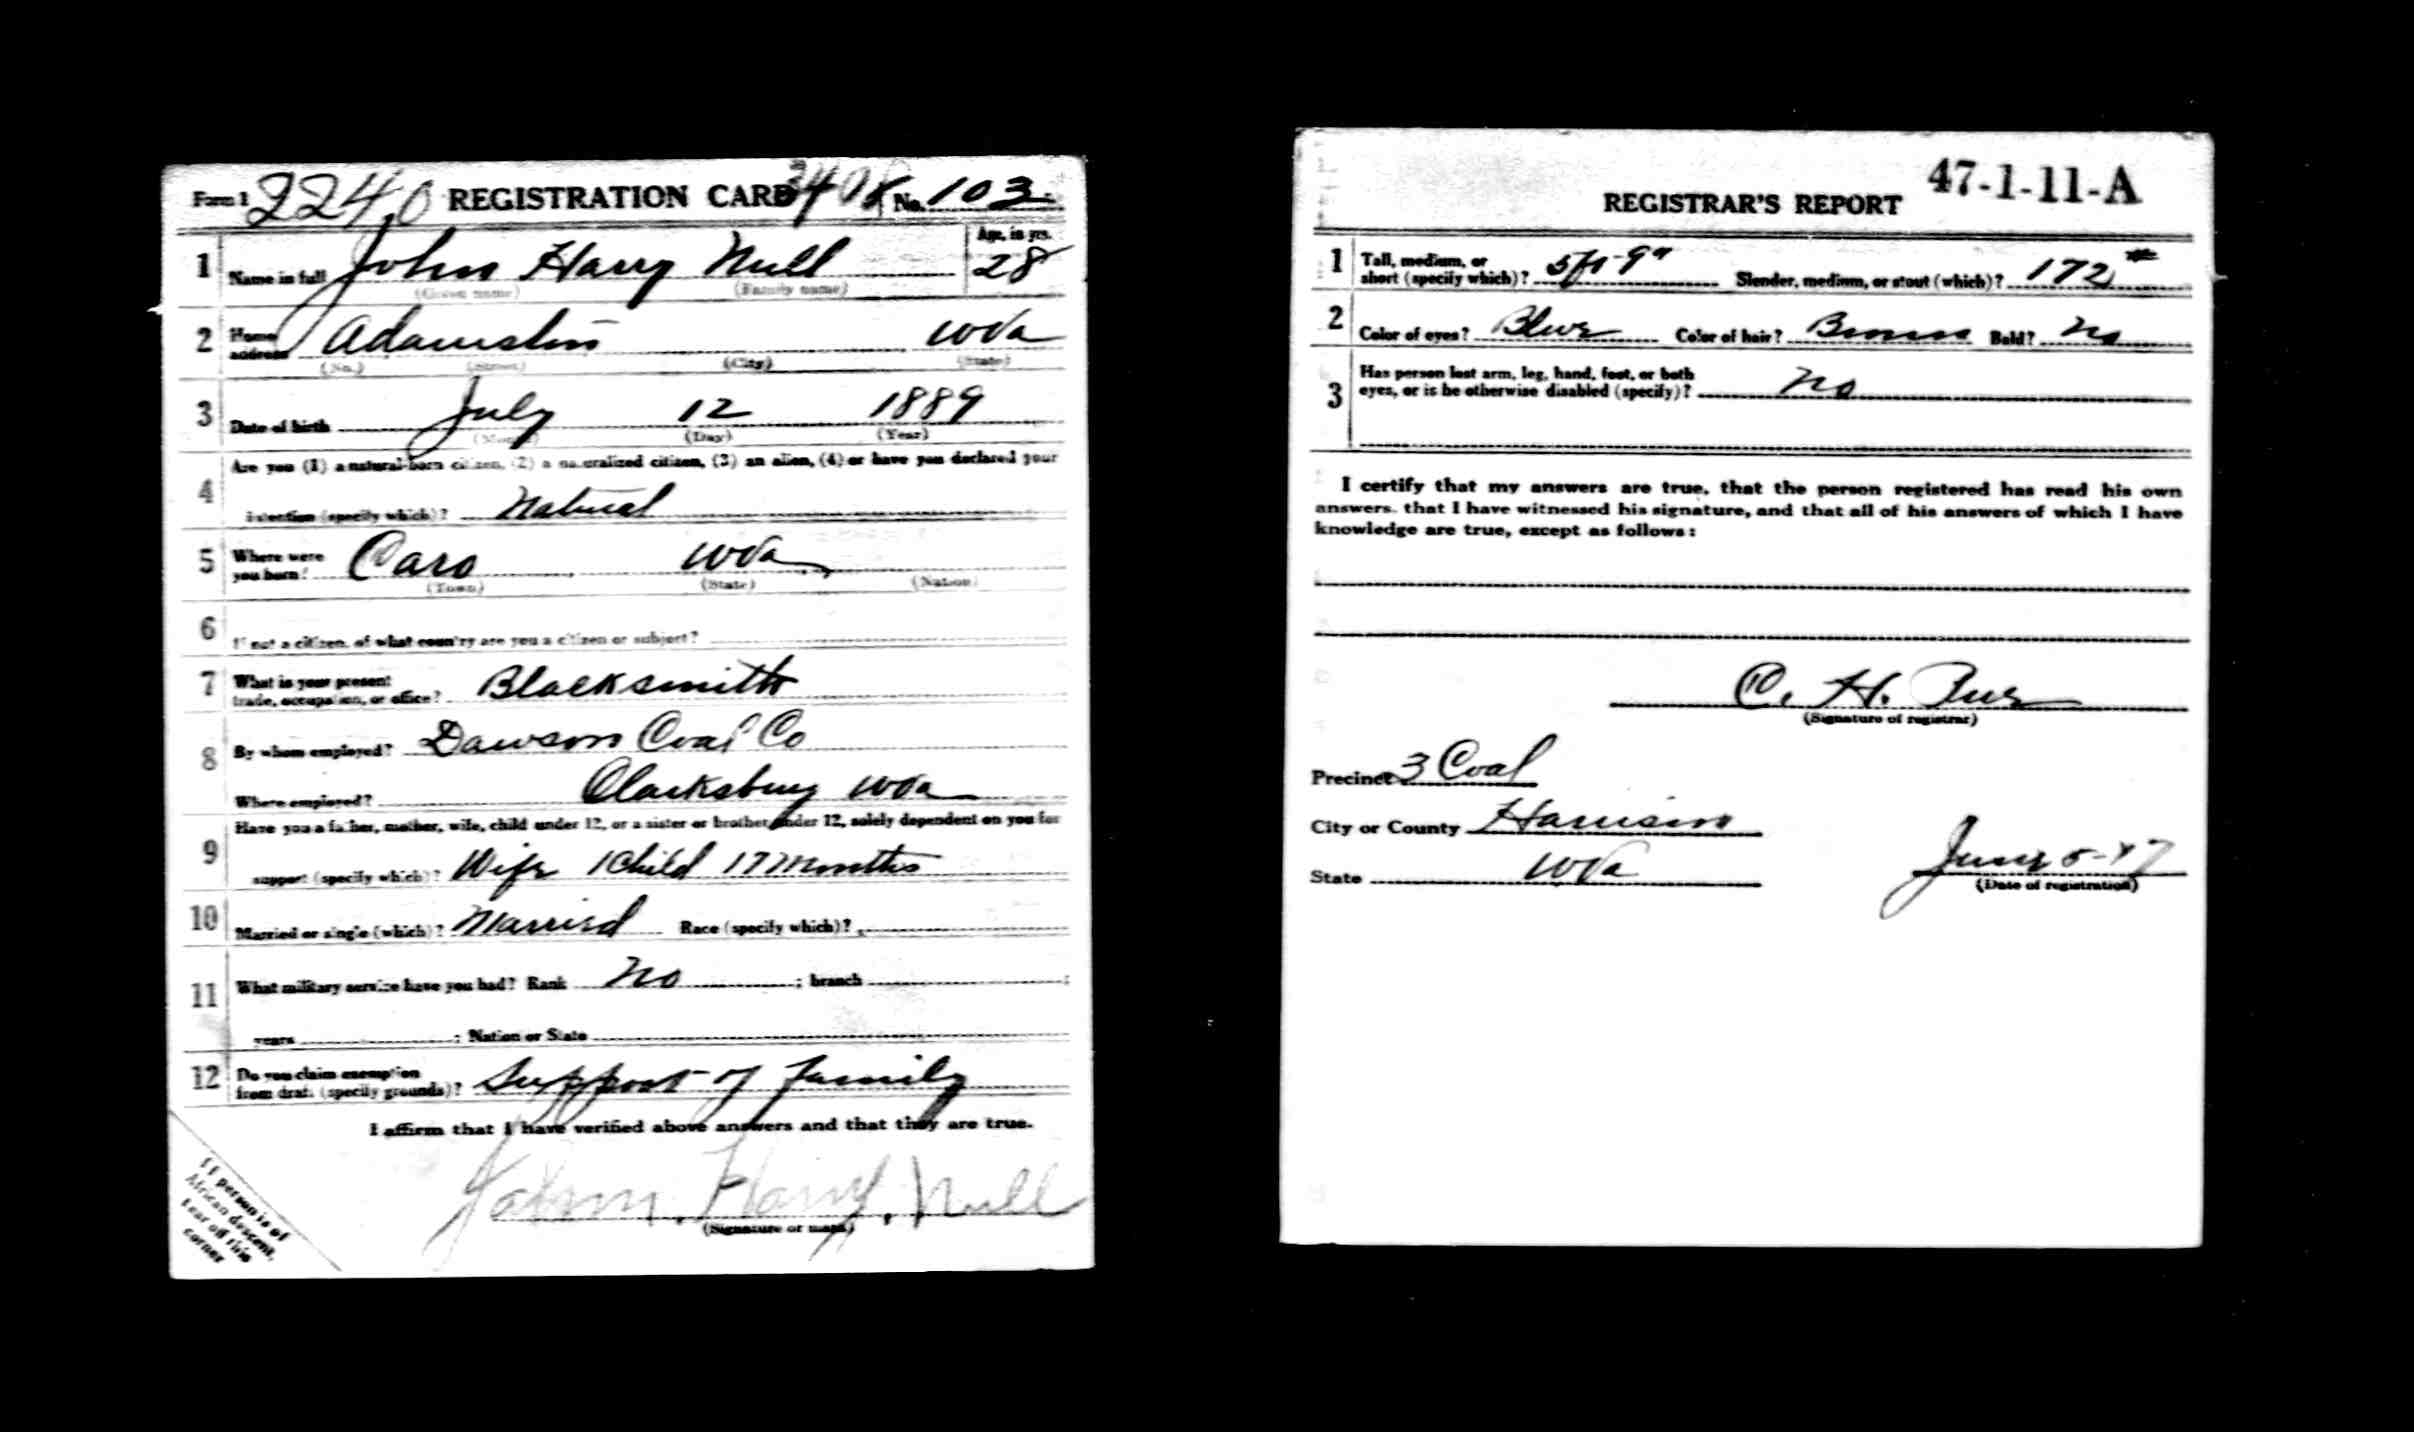 Form 1 2240 REGISTRATION CARD No. 103
1 Name in full John Harry Null Age, in yrs. 28
(Given name) (Family name)
2 Home address Adamston WVa
(No.) (Street) (City) (State)
3 Date of birth July 12 1889
(Month) (Day) (Year)
Are you (1) a natural-born citizen, (2) a naturalized citizen, (3) an alien, (4) or have you declared your
4 intention (specify which)? Natural
5 Where were you born? Caro WVa
(Town) (State) (Nation)
6 If not a citizen, of what country are you a citizen or subject?
7 What is your present trade, occupation, or office? Blacksmith
8 By whom employed? Dawson Coal Co
Where employed? Clarksburg WVa
9 Have you a father, mother, wife, child under 12, or a sister or brother under 12, solely dependent on you for
support (specify which)? Wife 1 Child 17 Months
10 Married or single (which)? Married Race (specify which)?
11 What military service have you had? Rank No ; branch ;
years ; Nation or State
12 Do you claim exemption from draft (specify grounds)? Support of Family
I affirm that I have verified above answers and that they are true.
John, Harry, Null
(Signature or mark)
If person is of
African descent,
tear off this
corner
47-1-11-A
REGISTRAR'S REPORT
1 Tall, medium, or short (specify which)? 5ft-9" Slender, medium, or stout (which)? 172 #
2 Color of eyes? Blue Color of hair? Brown Bald? No
3 Has person lost arm, leg, hand, foot, or both
eyes, or is he otherwise disabled (specify)? No
I certify that my answers are true, that the person registered has read his own
answers, that I have witnessed his signature, and that all of his answers of which I have
knowledge are true, except as follows:
C. H.
(Signature of registrar)
Precinct 3 Coal
City or County Harrison
State WVa June 5-17
(Date of registration)